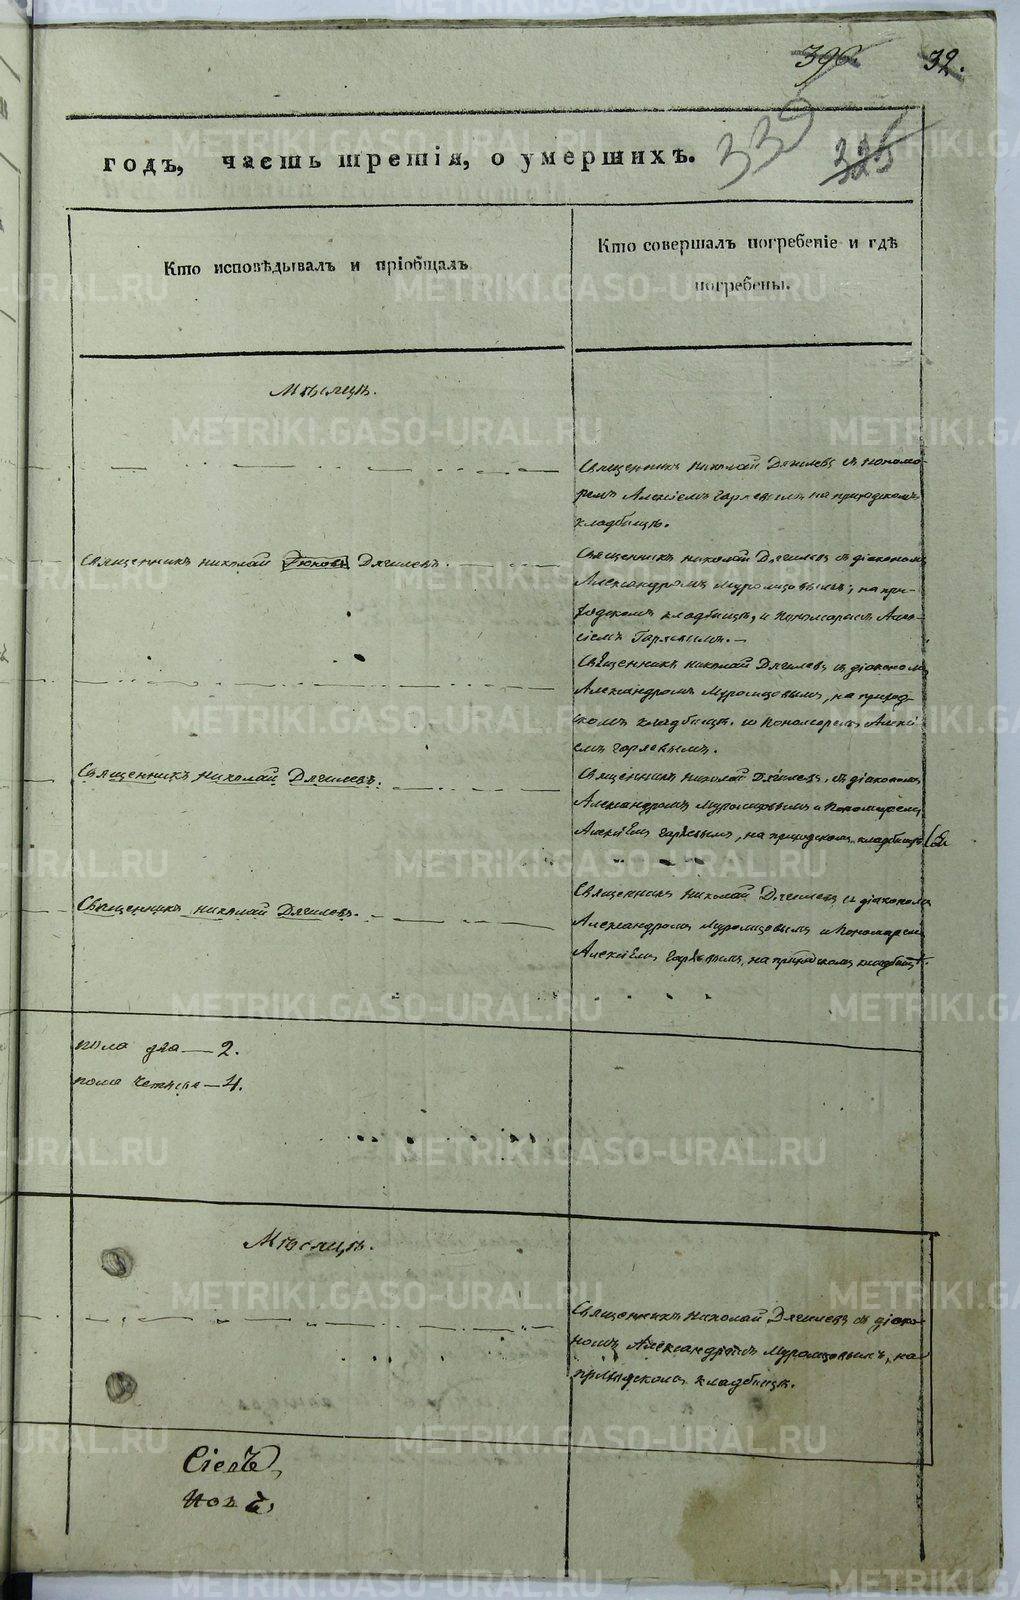 396. 32.
339 325
годъ, часть третія, о умершихъ.
Кто исповѣдывалъ и пріобщалъ
Кто совершалъ погребеніе и гдѣ
погребены.
Мѣсяцъ.
Священникъ Николай Дягилевъ съ понома-
ремъ Алексіемъ Гаряевымъ на приходскомъ
кладбищѣ.
Священникъ Николай Дягилевъ.
Священникъ Николай Дягилевъ съ діакономъ
Александромъ Муромцовымъ; на при-
ходскомъ кладбищѣ, и пономаремъ Алек-
сіемъ Гаряевымъ. —
Священникъ Николай Дягилевъ съ діакономъ
Александромъ Муромцовымъ, на приход-
скомъ кладбищѣ. и пономаремъ Алексі-
емъ Гаряевымъ.
Священникъ Николай Дягилевъ.
Священникъ Николай Дягилевъ, съ діакономъ
Александромъ Муромцовымъ и пономаремъ
Алексіемъ Гаряевымъ, на приходскомъ кладбищѣ
Священникъ Николай Дягилевъ.
Священникъ Николай Дягилевъ съ діакономъ
Александромъ Муромцовымъ и пономаремъ
Алексіемъ Гаряевымъ, на приходскомъ кладбищѣ.
пола два — 2.
пола четыре — 4.
Мѣсяцъ.
Священникъ Николай Дягилевъ съ діако-
номъ Александромъ Муромцовымъ, на
приходскомъ кладбищѣ.
METRIKI.GASO-URAL.RU